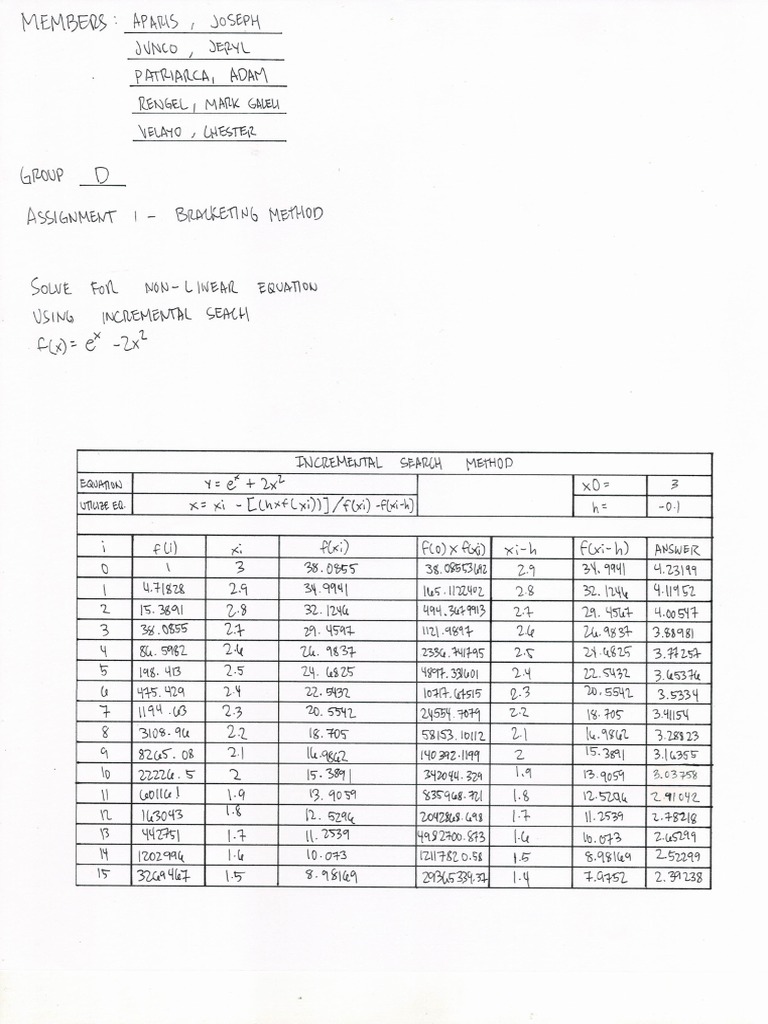 MEMBERS: APARIS, JOSEPH
JUNCO, JERYL
PATRIARCA, ADAM
RENGEL, MARK GALELI
VELAYO, CHESTER
GROUP D
ASSIGNMENT 1 - BRACKETING METHOD
SOLVE FOR NON-LINEAR EQUATION
USING INCREMENTAL SEACH
f(x) = e^x - 2x^2
INCREMENTAL SEARCH METHOD
EQUATION Y = e^x + 2x^2 x0 = 3
UTILIZE EQ. X = Xi - [(h×f(xi))]/f(xi) - f(xi-h) h = -0.1
i f(i) xi f(xi) f(0) x f(xi) xi-h f(xi-h) ANSWER
0 1 3 38.0855 38.08553692 2.9 34.9941 4.23199
1 4.71828 2.9 34.9941 165.1122402 2.8 32.1246 4.11952
2 15.3891 2.8 32.1246 494.3679913 2.7 29.4567 4.00547
3 38.0855 2.7 29.4597 1121.9897 2.6 26.9837 3.88981
4 86.5982 2.6 26.9837 2336.741795 2.5 24.6825 3.77257
5 198.413 2.5 24.6825 4897.331601 2.4 22.5432 3.65376
6 475.429 2.4 22.5432 10717.67515 2.3 20.5542 3.5334
7 1194.63 2.3 20.5542 24554.7079 2.2 18.705 3.41154
8 3108.96 2.2 18.705 58153.10112 2.1 16.9862 3.28823
9 8265.08 2.1 16.9862 140392.1199 2 15.3891 3.16355
10 22226.5 2 15.3891 342044.329 1.9 13.9059 3.03758
11 60116.1 1.9 13.9059 835968.721 1.8 12.5296 2.91042
12 163043 1.8 12.5296 2042868.698 1.7 11.2539 2.78218
13 442751 1.7 11.2539 4982700.873 1.6 10.073 2.65299
14 1202996 1.6 10.073 12117820.58 1.5 8.98169 2.52299
15 3269467 1.5 8.98169 29365339.37 1.4 7.9752 2.39238